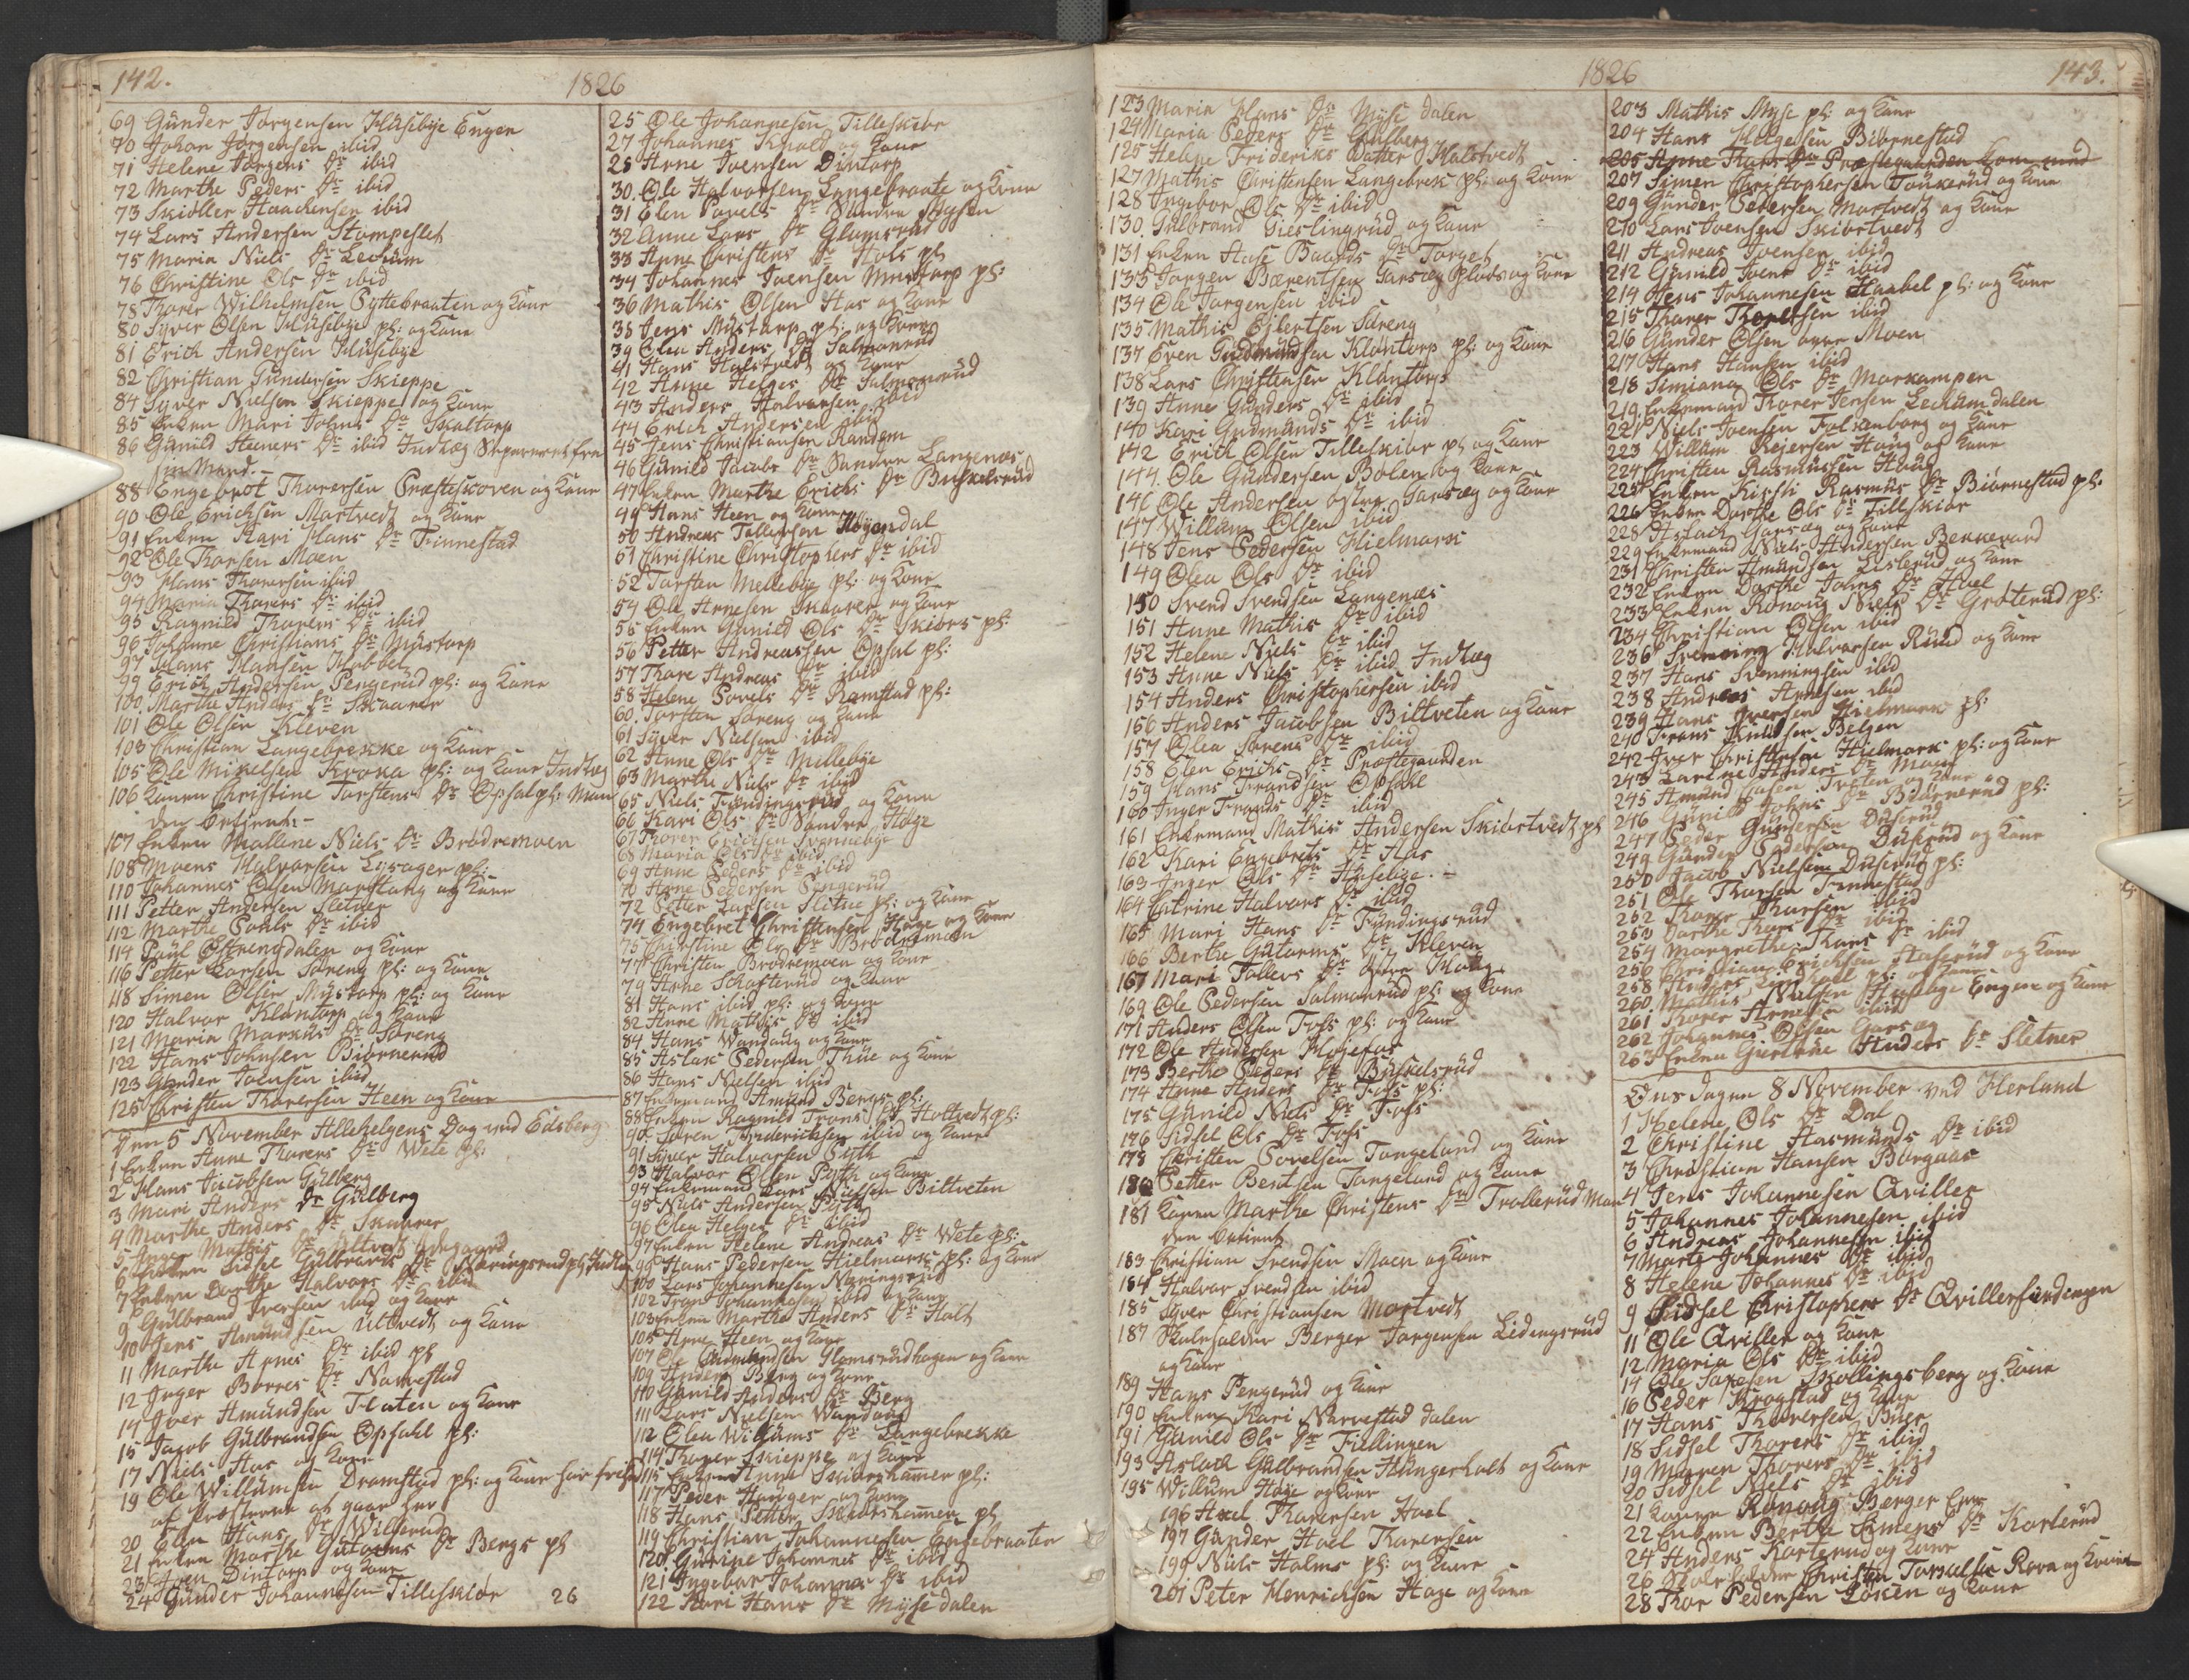 142.
1826
69 Gunder Jørgensen Huseby Engen
70 Johan Jørgensen ibid
71 Helene Jørgens Dr ibid
72 Marthe Peders Dr ibid
73 Skiøller Haachensen ibid
74 Lars Andersen Stampeslet
75 Maria Niels Dr Lechum
76 Christine Ols Dr ibid
78 Thorer Wilhelmsen Pyttebraaten og Kone
80 Syver Olsen Husebye pl: og Kone
81 Erich Andersen Husebye
82 Christian Gundersen Skieppe
84 Syver Nielsen Skieppe og Kone
85 Enken Mari Johns Dr Skaltorp
86 Gunild Steeners Dr ibid Indlæg Separeret fra
sin Mand.
88 Engebret Thorersen Præsteskoven og Kone
90 Ole Erichsen Martvedt og Kone
91 Enken Kari Hans Dr Finnestad
92 Ole Thorsen Moen
93 Hans Thorersen ibid
94 Maria Thorers Dr ibid
95 Ragnild Thorers Dr ibid
96 Johanne Christians Dr Mustorp
97 Hans Hansen Habbel
99 Erich Andersen Pengerud pl: og Kone
100 Marthe Anders Dr Skaarer
101 Ole Olsen Kleven
103 Christian Langebrekke og Kone
105 Ole Mikelsen Kroka pl: og Kone Indlæg
106 Konen Christine Torstens Dr Opsal pl: Man
den Patient.-
107 Enken Mallene Niels Dr Brødremoen
108 Moens Halvorsen Lysager pl:
110 Johannes Olsen og Kone
111 Petter Andersen Sletner
112 Marthe Povls Dr ibid
114 Poul Østrengdalen og Kone
116 Petter Larsen Søreng pl: og Kone
118 Simen Olsen Mystorp pl: og Kone
120 Halvor Klontorp og Kone
121 Maria Markus Dr Søreng
122 Hans Johnsen Biørnerud
123 Gunder Joensen ibid
125 Christen Thorersen Heen og Kone
Den 5 November Allehelgens Dag ved Eidsberg
1 Enken Anne Thorers Dr Wete pl:
2 Hans Jacobsen Gulberg
3 Mari Anders Dr Gulberg
4 Marthe Anders Dr Skaarer
5 Inger Mathis Dr Ultvedt Ødegaard
6 Enken Sidsel Gulbrands Dr Næringsrud pl: Indlæg
7 Enken Dorthe Halvors Dr ibid
9 Gulbrand Iversen ibid og Kone
10 Jens Amundsen Ultvedt og Kone
11 Marthe Arnes Dr ibid pl
12 Inger Børres Dr Narvestad
14 Iver Amundsen Flaten og Kone
15 Jacob Gulbrandsen Opsahl pl:
17 Niels Aas og Kone
19 Ole Willumsen Dramstad pl: og Kone
af Præsterne at gaae her
20 Elen Hans Dr Wilberud
21 Enken Marthe Gutorms Dr Bergs pl
23 Joen Dintorp og Kone
24 Gunder Johannesen Tilleskiør 26
25 Ole Johannesen Tilleskiør
27 Johannes og Kone
28 Arne Joensen Dintorp
30. Ole Halvorsen Langebraate og Kone
31 Elen Povels Dr Søndre Mysen
32 Anne Lars Dr Glamsrud
33 Anne Christens Dr Hols pl
34 Johannes Joensen Mustorp pl:
36 Mathis Olsen Aas og Kone
38 Jens Mustorp pl: og Kone
39 Olea Anders Dr Salmonrud
41 Hans Halstvedt og Kone
42 Anne Helges Dr Salmonrud
43 Anders Halvorsen ibid
44 Erich Andersen ibid
45 Jens Christiansen Randem
46 Gunild Jacobs Dr Søndre Langenæs
47 Enken Marthe Erichs Dr Buskelsrud
49 Hans Heen og Kone
50 Andreas Tollefsen Høyendal
51 Christine Christophers Dr ibid
52 Torsten Mellebye pl: og Kone
54 Ole Arnesen Skaarer og Kone
55 Enken Gunild Ols Dr Skiørs pl:
56 Petter Andreassen Opsal pl:
57 Thore Andreas Dr ibid
58 Helene Povels Dr Ramstad pl:
60. Torsten Søreng og Kone
61 Syver Nielsen ibid
62 Anne Ols Dr Mellebye
63 Marthe Niels Dr ibid
65 Niels Fundingsrud og Kone
66 Kari Ols Dr Søndre Høge
67 Thorer Erichsen Svennebye
68 Maria Ols Dr ibid
69 Anne Peders Dr ibid
70 Arne Pedersen Pengerud
72 Petter Larsen Slitue pl: og Kone
74 Engebret Christensen Høge og Kone
75 Christine Ols Dr Brødremoen
77 Christen Brødremoen og Kone
79 Arne Schofterud og Kone
81 Hans ibid pl: og Kone
82 Anne Mathis Dr ibid
84 Hans Wandaug og Kone
85 Aslak Pedersen Thue og Kone
86 Hans Nielsen ibid
87 Enkemand Amund Bergs pl:
88 Enken Ragnild Frans Dr Holtvedt pl:
90 Søren Friderichsen ibid og Kone
91 Syver Halvorsen Pyth
93 Halvor Olsen Pyth og Kone
94 Enkemand Lars Nielsen Biltveten
95 Niels Andersen Pyth
96 Olea Helges Dr ibid
97 Enken Helene Andreas Dr Wete pl:
99 Hans Pedersen Hielmark pl: og Kone
100 Lars Johannesen Næringsrud
102 Frans Johannesen ibid og Kone
103 Enken Marthe Anders Dr Holt
105 Arne Heen og Kone
107 Ole Gudmundsen Glomsrudhagen og Kone
109 Anders Berg og Kone
110 Gunild Anders Dr Berg
111 Lars Nielsen Wandaug
112 Olea Willums Dr Langebrekke
114 Thorer Skieppe og Kone
115 Enken Anne Skiørshamer pl:
117 Peder Hauger og Kone
118 Hans Petter Skiørshamer pl
119 Christian Johannesen Engebraaten
120 Gurine Johannes Dr ibid
121 Ingebor Johannes Dr ibid
122 Kari Hans Dr Myse dalen
1826
143.
123 Maria Hans Dr Myse dalen
124 Maria Peders Dr Gulberg
125 Helene Frideriks Datter Halstvedt
127 Mathis Christensen Langebrek pl: og Kone
128 Ingebor Ols Dr ibid
130. Gulbrand Gieslingrud og Kone
131 Enken Aase Baards Dr Torget
133 Jørgen Bærentsen Garsæg plads og Kone
134 Ole Jørgensen ibid
135 Mathis Ejlertsen Søreng
137 Even Gudmundsen Klontorp pl: og Kone
138 Lars Christensen Klontorp
139 Anne Gunders Dr ibid
140 Kari Gudmunds Dr ibid
142 Erich Olsen Tilleskiør pl og Kone
144. Ole Gundersen Bolen og Kone
146 Ole Andersen østre Garsæg og Kone
147 Willum Olsen ibid
148 Jens Pedersen Hielmark
149 Olea Ols Dr ibid
150 Svend Svendsen Langenæs
151 Anne Mathis Dr ibid
152 Helene Niels Dr ibid
153 Anne Niels Dr ibid Indlæg
154 Anders Christophersen ibid
156 Anders Jacobsen Biltveten og Kone
157 Olea Sørens Dr ibid
158 Elen Erichs Dr Præstegaarden
159 Hans Frandsen Opsahl
160 Inger Frands Dr ibid
161 Enkemand Mathis Andersen Skiørtvedt pl
162 Kari Engebrets Dr Aas
163 Inger Ols Dr Husebye.-
164 Catrine Halvors Dr ibid
165 Mari Hans Dr Fundingsrud
166 Berthe Gutorms Dr Kleven
167 Mari Tollevs Dr
169 Ole Pedersen Salmonrud pl: og Kone
171 Anders Olsen Foss pl: og Kone
172 Ole Andersen
173 Berthe Peders Dr Buskelsrud
174 Anne Anders Dr Foss pl:
175 Gunild Niels Dr Foss
176 Sidsel Ols Dr Foss
178 Christen Povelsen Tangelund og Kone
180 Petter Bentsen Tangelund og Kone
181 Konen Marthe Christens Dr Trollerud Man
den Patient
183 Christian Svendsen Moen og Kone
184 Halvor Svendsen ibid
185 Syver Christiansen Mortvedt
187 Skoleholder Berger Jørgensen Lidingsrud
og Kone
189 Hans Pengerud og Kone
190 Enken Kari Narvestad dalen
191 Gunild Ols Dr Fiellingen
193 Aslach Gulbrandsen Hungerholt og Kone
195 Willum Høje og Kone
196 Axel Thorersen Hoel
197 Gunder Hoel Thorersen
199 Niels Holms pl: og Kone
201 Peter Henrichsen Høge og Kone
203 Mathis Myse pl: og Kone
204 Hans Helgesen Biørnestad
205 Anne Hans Dr Præstegaarden
207 Simen Christophersen Toukerud og Kone
209 Gunder Pedersen Mortvedt og Kone
210 Lars Joensen Skiørtvedt
211 Andreas Joensen ibid
212 Gunild Joens Dr ibid
214 Jens Johannesen Haabel pl: og Kone
215 Thorer Thorersen ibid
216 Gunder Olsen øvre Moen
217 Hans Hansen ibid
218 Simiana Ols Dr Morkampen
219. Enkemand Thorer Jensen Lechumdalen
221 Niels Joensen Folkenborg og Kone
223 Willum Rejersen Haug og Kone
224 Christen Rasmussen Haug
225 Enken Kirsti Rasmus Dr Biørnestad pl.
226 Enken Dorthe Ols Dr Tilleskiør
228 Aslach Garsæg og Kone
229 Enkemand Niels Andersen Bekkevard
231 Christen Amundsen Lislerud og Kone
232 Enken Dorthe Johns Dr Hoel
233 Enken Ronoug Niels Dr Grøterud pl:
234 Christian Olsen ibid
236 Svenning Halvorsen Ruud og Kone
237 Hans Svenningsen ibid
238 Andreas Arnesen ibid
239 Hans Iversen Hielmark pl:
240 Frans Knudsen Belgen
242 Iver Christensen Hielmark pl: og Kone
243 Larine Anders Dr Moen
245 Amund og Kone
246 Gunild Johns Dr Biørnerud pl:
247 Peder Gundersen Duserud
249 Gunder Pedersen Duserud og Kone
250 Jacob Nielsen Duserud pl:
251 Ole Thorsen Finnestad
252 Thorer Thorsen ibid
253 Dorthe Thors Dr ibid
254 Margrethe Thors Dr ibid
256 Christian Erichsen Haserud og Kone
258 Anders pl: og Kone
260. Mathis Nielsen Husebye Engen og Kone
261 Thorer Arnesen ibid
262 Johannes Olsen Garsæg
263 Enken Gurthie Anders Dr Sletner
Onsdagen 8 November ved Herland
1 Helene Ols Dr Dal
2 Christine Aasmunds Dr ibid
3 Christian Hansen Borgaas
4 Jens Johannesen Qviller
5 Johannes Johannesen ibid
6 Andreas Johannesen ibid
7 Marte Johannes Dr ibid
8 Helene Johannes Dr ibid
9 Sidsel Christophers Dr Qvillerfundingen
11 Ole Qviller og Kone
12 Maria Ols Dr ibid
14 Ole Saxesen Skollingsberg og Kone
16 Peder Krogstad og Kone
17 Hans Thorersen Buer
18 Sidsel Thorers Dr ibid
19 Marren Thorers Dr ibid
20 Sidsel Niels Dr ibid
21 Konen Ronoug Berger
22 Enken Berthe Simens Dr Karterud
24 Anders Karterud og Kone
26 Skoleholder Christen Torvalsen Rova og Kone
28 Thor Pedersen Løken og Kone